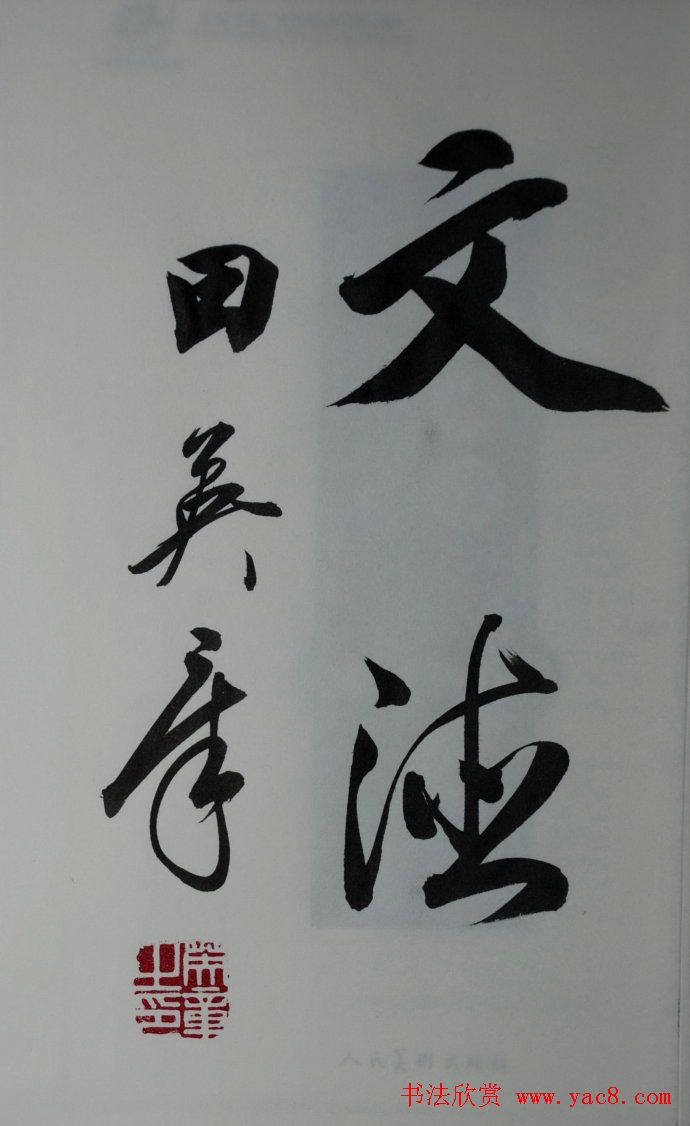 文德
田英章
人民美術出版社
书法欣赏 www.yac8.com